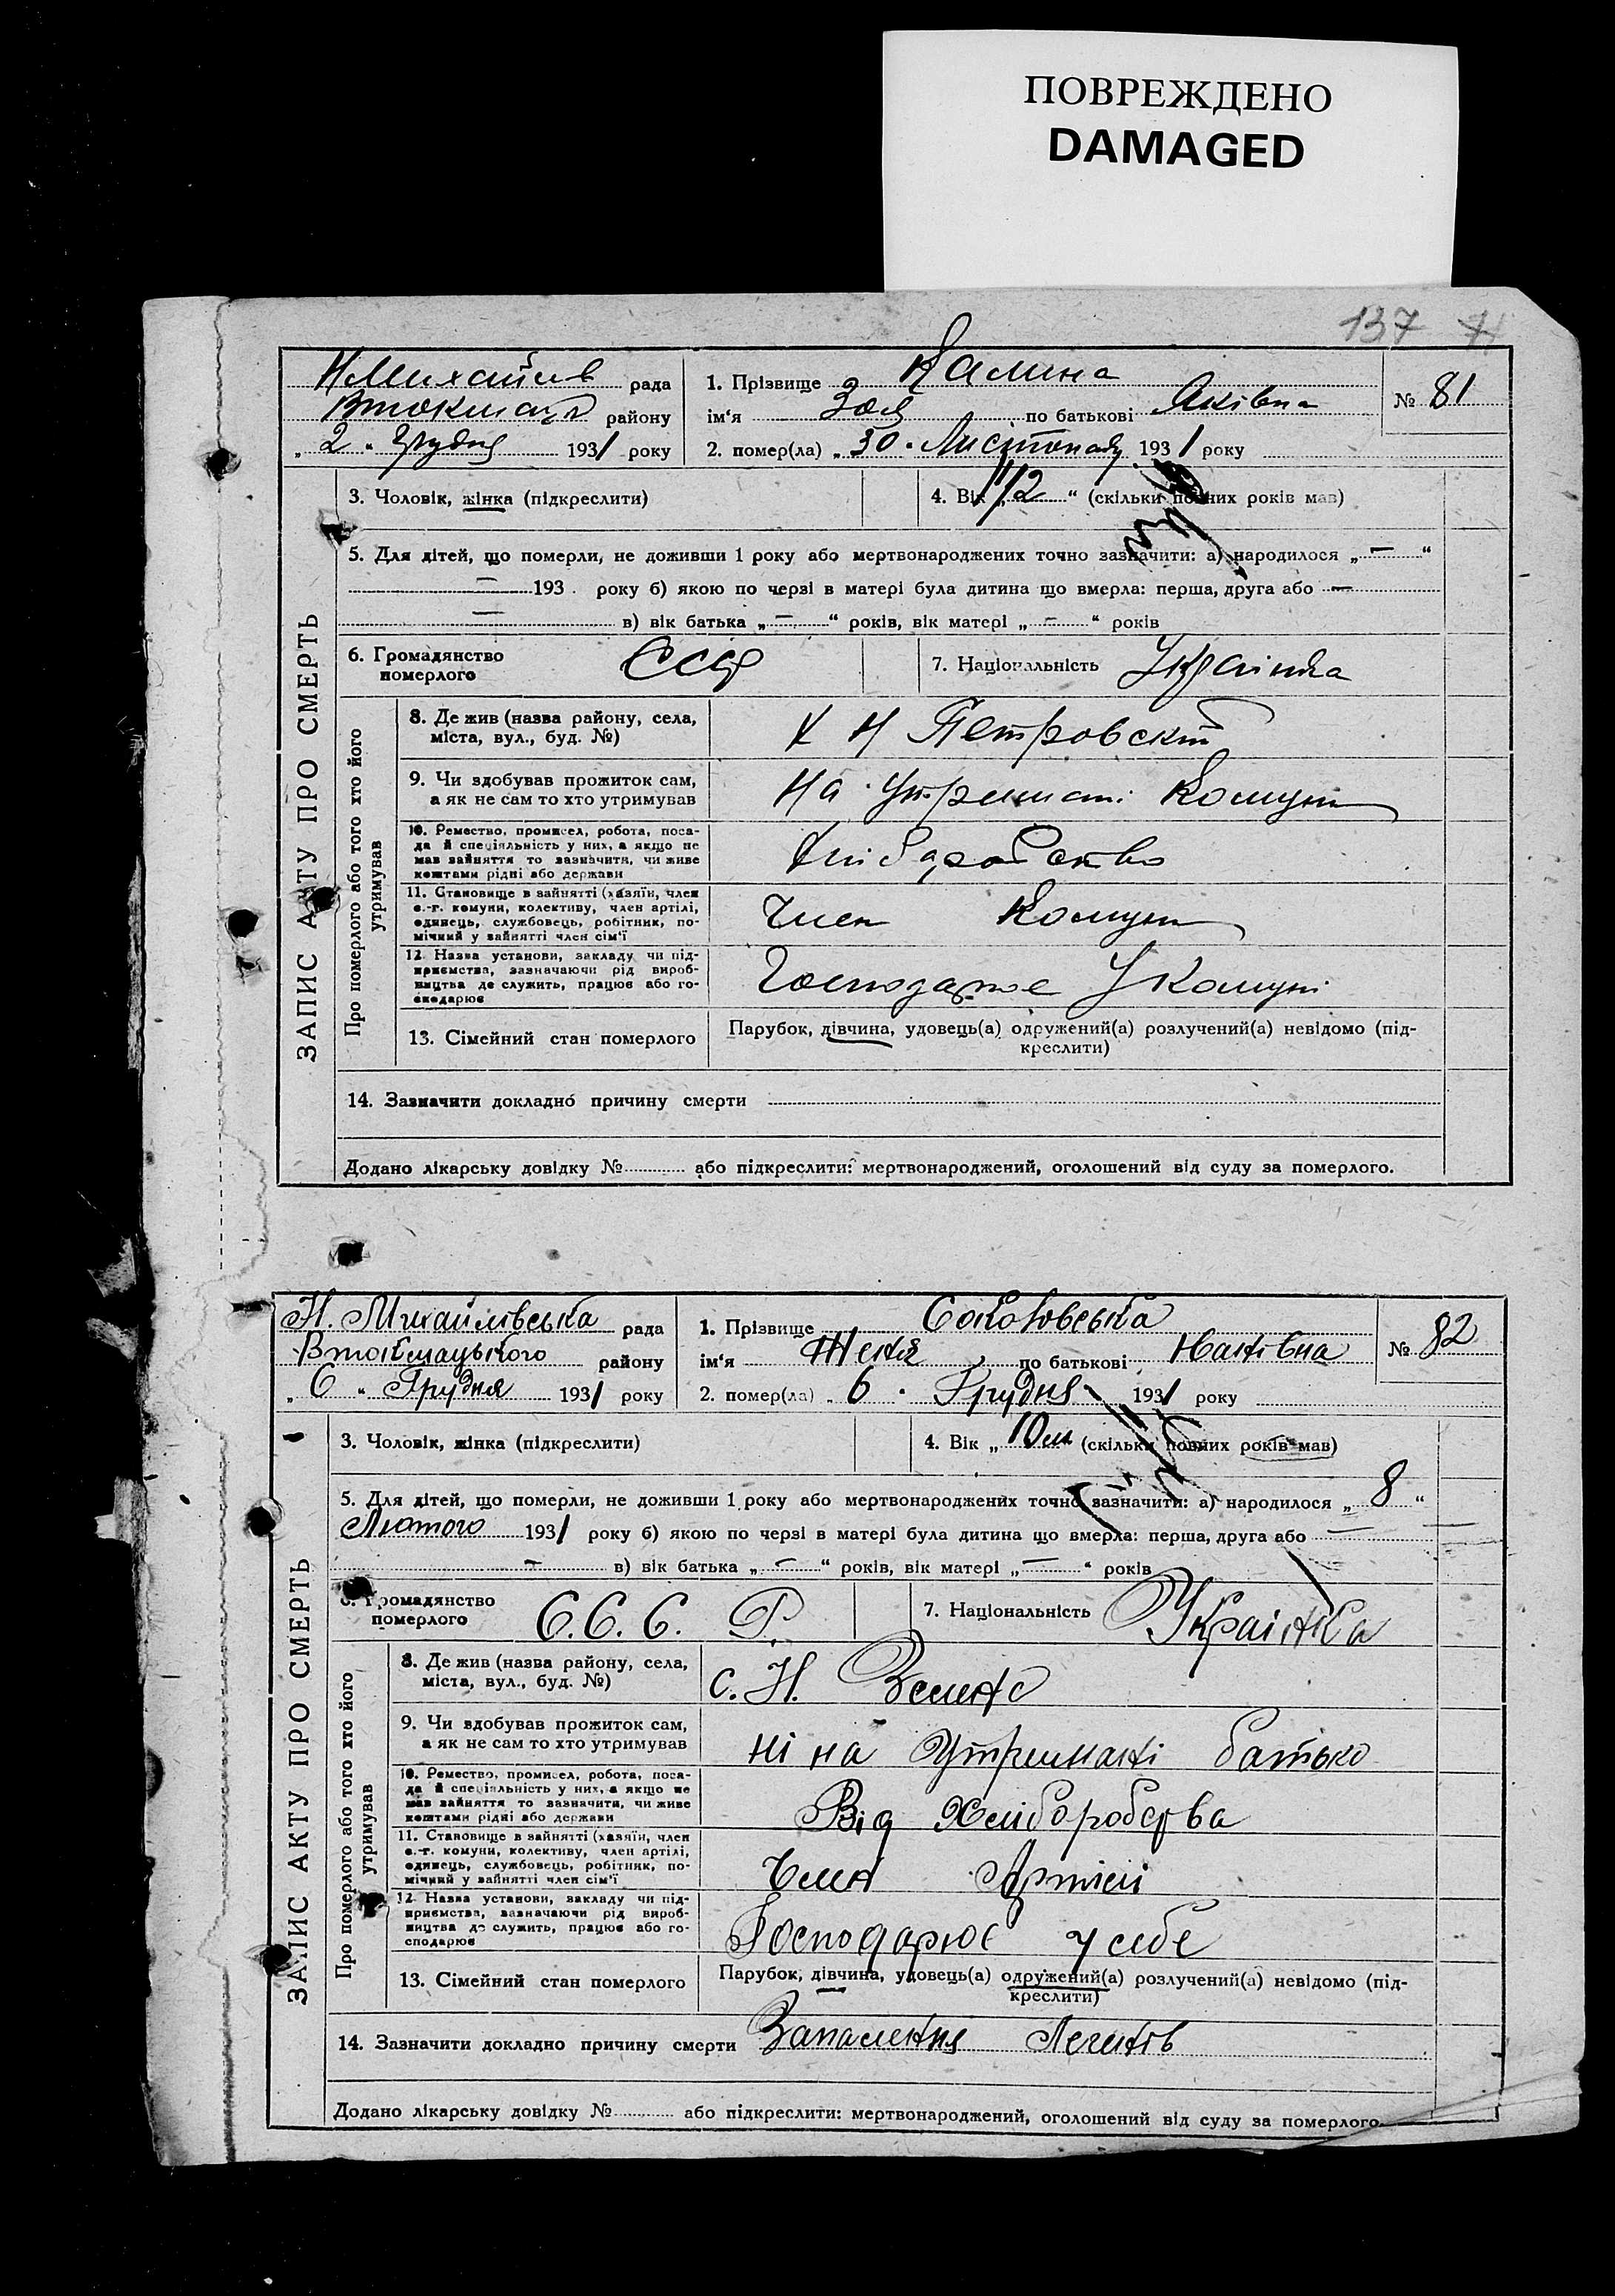 ПОВРЕЖДЕНО
DAMAGED
137
ЗАПИС АКТУ ПРО СМЕРТЬ
НМихайлів рада
Втокмац району
„ 2 “ Грудня 1931 року
1. Прізвище Калина
ім‘я Зоя по батькові Яківна
2. помер(ла) „ 30 “ Листопаду 1931 року
№ 81
3. Чоловік, жінка (підкреслити)
4. Вік „ 1/2 “ (скільки повних років мав)
5. Для дітей, що померли, не доживши 1 року або мертвонароджених точно зазначити: а) народилося „ — “
— 193 . року б) якою по черзі в матері була дитина що вмерла: перша, друга або —
— в) вік батька „ — “ років, вік матері „ — “ років
6. Громадянство
померлого
СССР
7. Національність Українка
Про померлого або того хто його
утримував
8. Де жив (назва району, села,
міста, вул., буд. №)
К Н Петровскт
9. Чи здобував прожиток сам,
а як не сам то хто утримував
На утримані Комуни
10. Ремество, промисел, робота, поса-
да й спеціяльність у них, а якщо не
мав зайняття то зазначити, чи живе
коштами рідні або держави
11. Становище в зайнятті (хазяїн, член
с.-г. комуни, колективу, член артілі,
одинець, службовець, робітник, по-
мічний у зайнятті член сім‘ї
Член Комуни
12. Назва установи, закладу чи під-
приємства, зазначаючи рід вироб-
ництва де служить, працює або го-
сподарює
Господарює У Комуні
13. Сімейний стан померлого
Парубок, дівчина, удовець(а) одружений(а) розлучений(а) невідомо (під-
креслити)
14. Зазначити докладно причину смерти
Додано лікарську довідку № або підкреслити: мертвонароджений, оголошений від суду за померлого.
ЗАПИС АКТУ ПРО СМЕРТЬ
Н. Михайлівська рада
Втокмацького району
„ 6 “ Грудня 1931 року
1. Прізвище
ім‘я Женя по батькові
2. помер(ла) „ 6 “ Грудня 1931 року
№ 82
3. Чоловік, жінка (підкреслити)
4. Вік „ 10 м “ (скільки повних років мав)
5. Для дітей, що померли, не доживши 1 року або мертвонароджених точно зазначити: а) народилося „ 8 “
Лютого 1931 року б) якою по черзі в матері була дитина що вмерла: перша, друга або —
— в) вік батька „ — “ років, вік матері „ — “ років
6. Громадянство
померлого
С.С.С. Р.
7. Національність Українка
Про померлого або того хто його
утримував
8. Де жив (назва району, села,
міста, вул., буд. №)
с. Н.
9. Чи здобував прожиток сам,
а як не сам то хто утримував
ні на Утримані батько
10. Ремество, промисел, робота, поса-
да й спеціяльність у них, а якщо не
мав зайняття то зазначити, чи живе
коштами рідні або держави
Від Хліборобства
11. Становище в зайнятті (хазяїн, член
с.-г. комуни, колективу, член артілі,
одинець, службовець, робітник, по-
мічний у зайнятті член сім‘ї
Член Артілі
12. Назва установи, закладу чи під-
приємства, зазначаючи рід вироб-
ництва де служить, працює або го-
сподарює
Господарює у себе
13. Сімейний стан померлого
Парубок, дівчина, удовець(а) одружений(а) розлучений(а) невідомо (під-
креслити)
14. Зазначити докладно причину смерти Запалення Легенів
Додано лікарську довідку № або підкреслити: мертвонароджений, оголошений від суду за померлого.